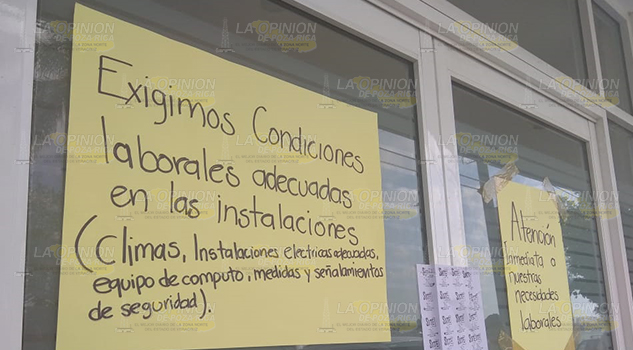 Exigimos Condiciones
laborales adecuadas
en las instalaciones
(Climas, Instalaciones electricas adecuadas,
equipo de computo, medidas y señalamientos
de seguridad).
Atención
Inmediata a
nuestras
necesidades
laborales
LA OPINION
DE POZA RICA